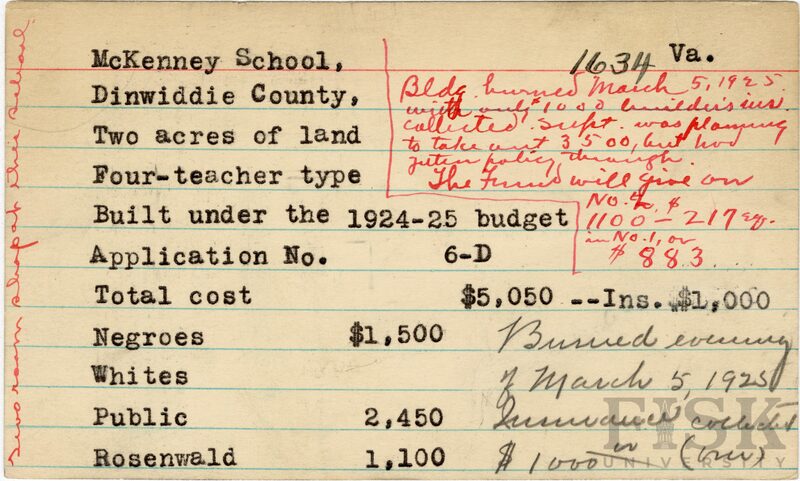 McKenney School,
1634 Va.
Dinwiddie County,
Two acres of land
Four-teacher type
Built under the 1924-25 budget
Application No. 6-D
Total cost $5,050 --Ins. $1,000
Negroes $1,500
Whites
Public 2,450
Rosenwald 1,100
Bldg. burned March 5, 1925
with only $1000 builder's ins.
collected. Supt. was planning
to take out 3500, but had
policy through.
The Fund will give on
No. 2, $
1100 - 217
in No. 1, or
$883
Burned evening
of March 5, 1925
Insurance collected
$1000
Two room shop at this school.
FISK
UNIVERSITY